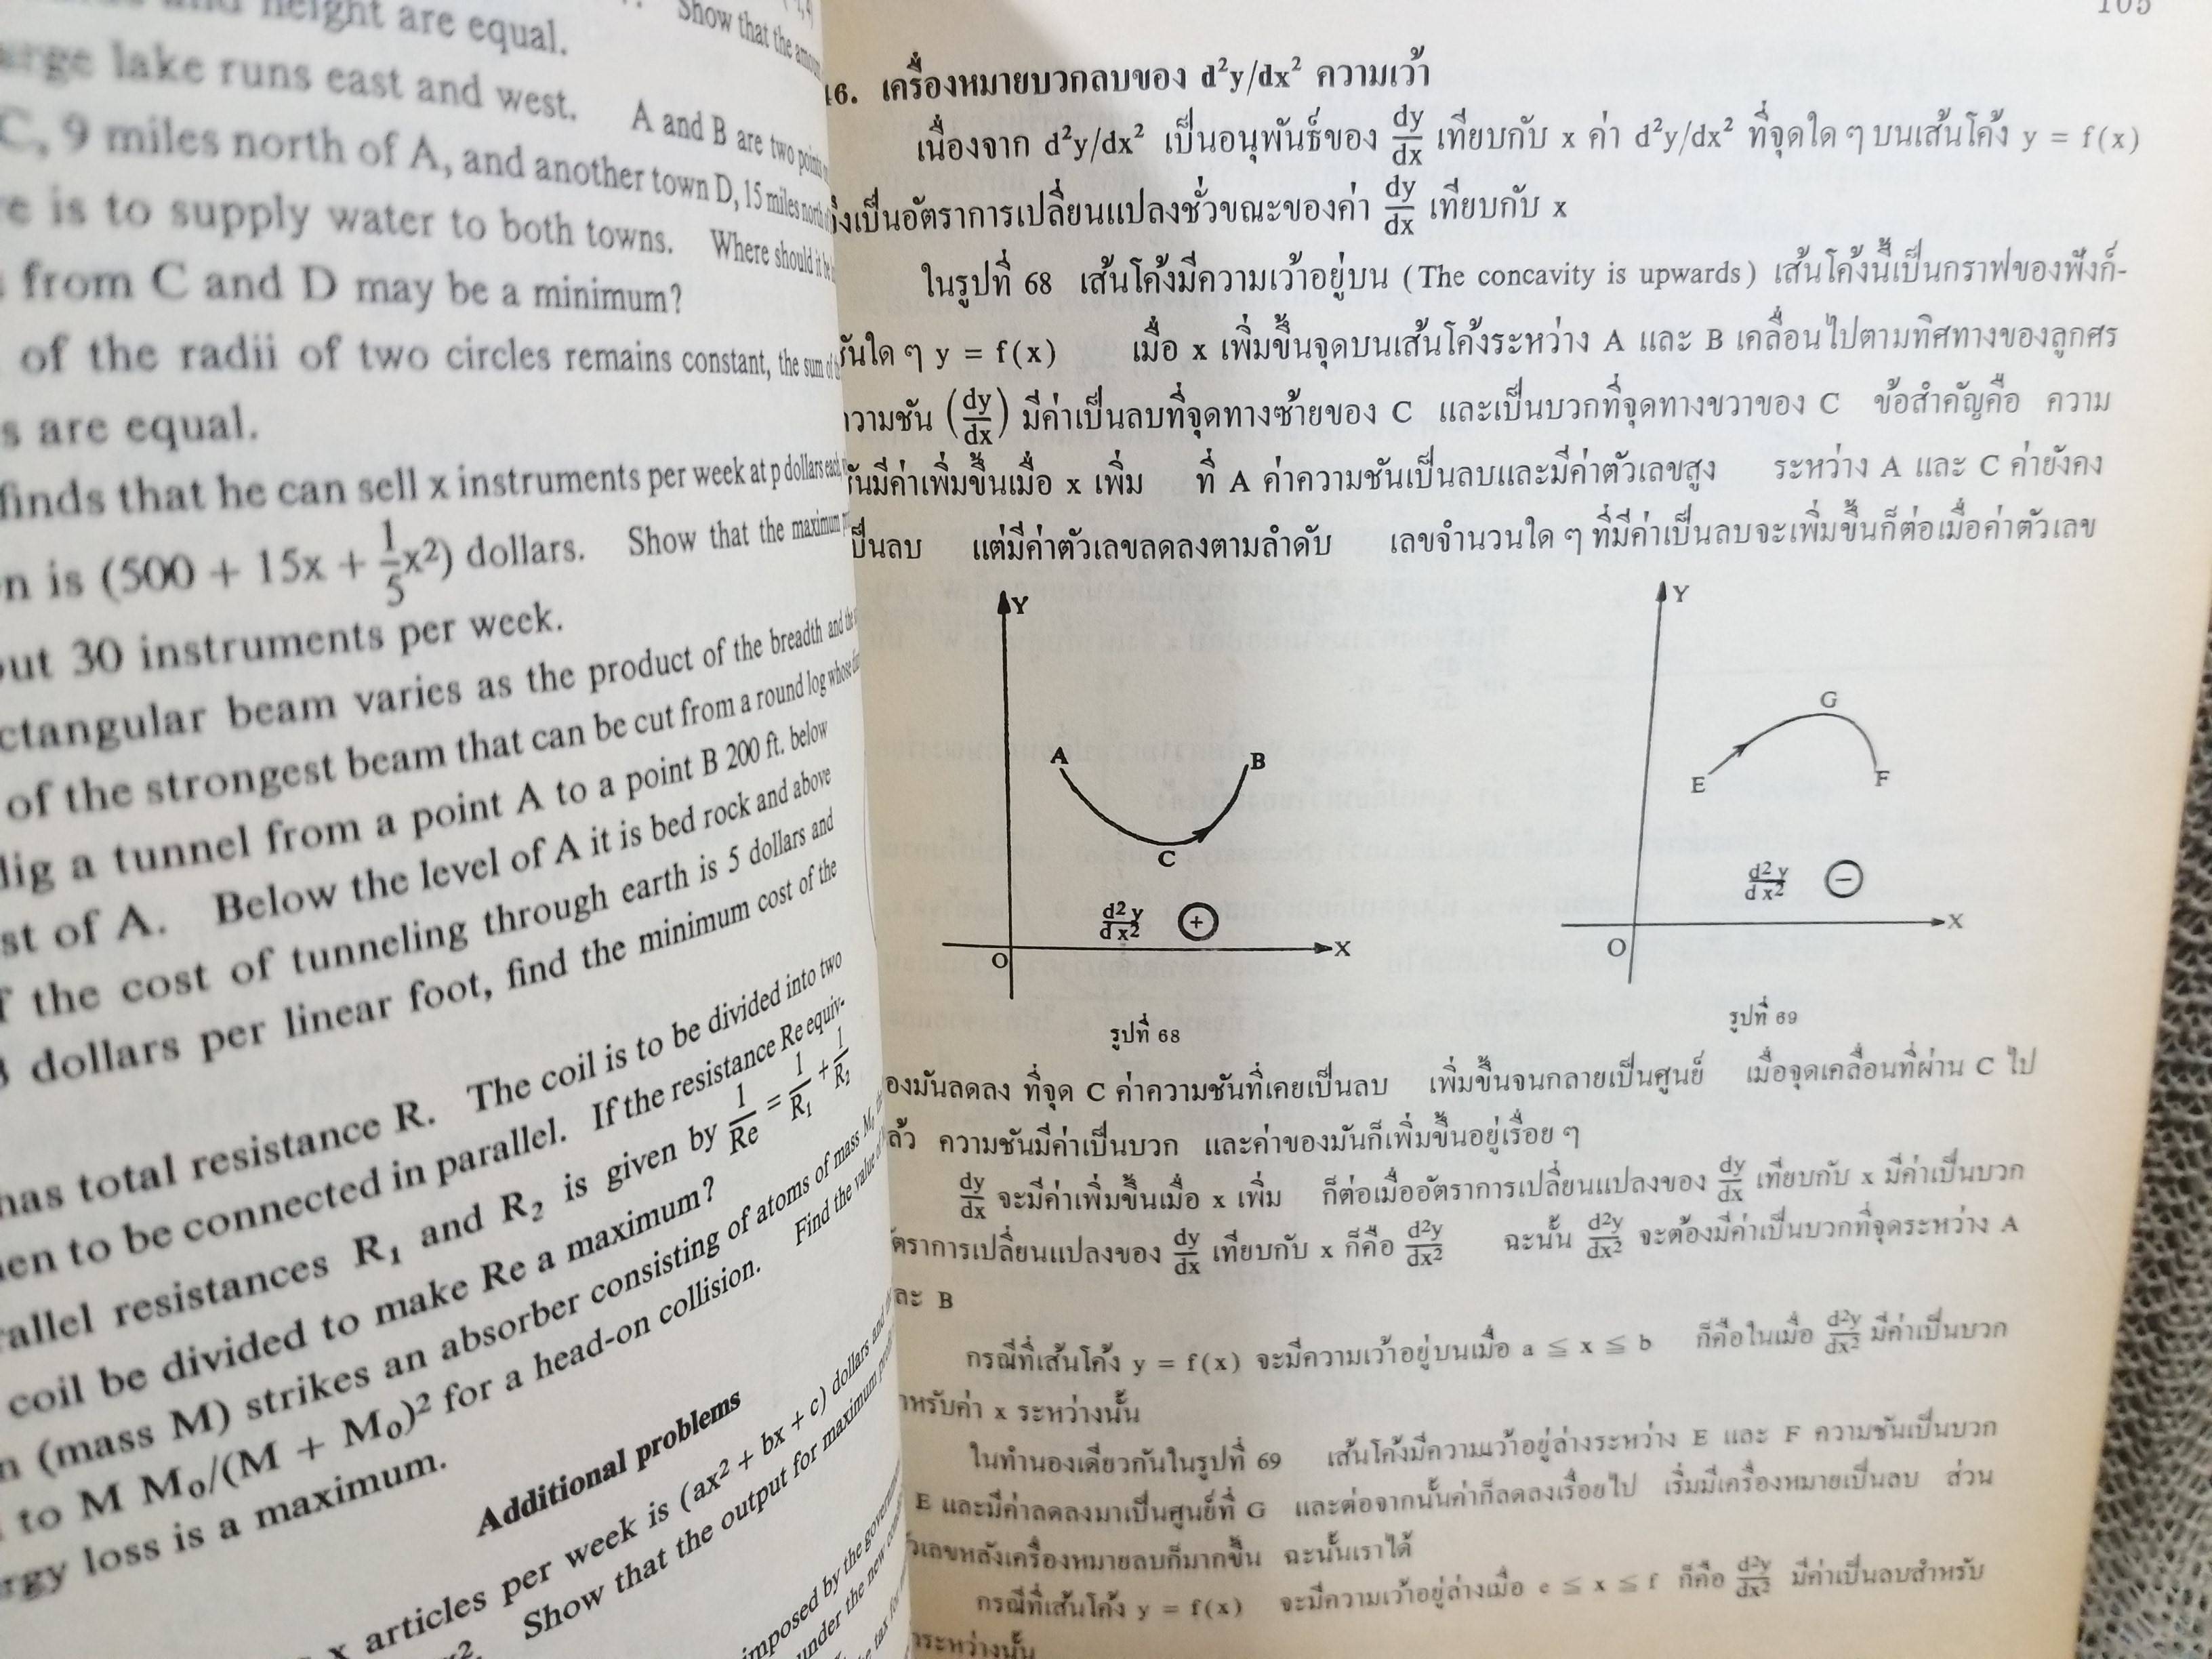 height are equal.
Show that the
large lake runs east and west. A and B are two points
C, 9 miles north of A, and another town D, 15 miles north
is to supply water to both towns. Where should it be
from C and D may be a minimum?
of the radii of two circles remains constant, the sum of
s are equal.
finds that he can sell x instruments per week at p dollars each
n is (500 + 15x + 1/5 x²) dollars. Show that the maximum
out 30 instruments per week.
ctangular beam varies as the product of the breadth and the
of the strongest beam that can be cut from a round log whose
dig a tunnel from a point A to a point B 200 ft. below
st of A. Below the level of A it is bed rock and above
f the cost of tunneling through earth is 5 dollars and
dollars per linear foot, find the minimum cost of the
has total resistance R. The coil is to be divided into two
en to be connected in parallel. If the resistance Re equiv-
rallel resistances R₁ and R₂ is given by 1/Re = 1/R₁ + 1/R₂
coil be divided to make Re a maximum?
n (mass M) strikes an absorber consisting of atoms of mass M₀
to M M₀/(M + M₀)² for a head-on collision. Find the value of
rgy loss is a maximum.
Additional problems
x articles per week is (ax² + bx + c) dollars and
Show that the output for maximum
imposed by the government
under the new
tax for
105
16. เครื่องหมายบวกลบของ d²y/dx² ความเว้า
เนื่องจาก d²y/dx² เป็นอนุพันธ์ของ dy/dx เทียบกับ x ค่า d²y/dx² ที่จุดใด ๆ บนเส้นโค้ง y = f(x)
จึงเป็นอัตราการเปลี่ยนแปลงชั่วขณะของค่า dy/dx เทียบกับ x
ในรูปที่ 68 เส้นโค้งมีความเว้าอยู่บน (The concavity is upwards) เส้นโค้งนี้เป็นกราฟของฟังก์-
ชันใด ๆ y = f(x) เมื่อ x เพิ่มขึ้นจุดบนเส้นโค้งระหว่าง A และ B เคลื่อนไปตามทิศทางของลูกศร
ความชัน (dy/dx) มีค่าเป็นลบที่จุดทางซ้ายของ C และเป็นบวกที่จุดทางขวาของ C ข้อสำคัญคือ ความ
ชันมีค่าเพิ่มขึ้นเมื่อ x เพิ่ม ที่ A ค่าความชันเป็นลบและมีค่าตัวเลขสูง ระหว่าง A และ C ค่ายังคง
เป็นลบ แต่มีค่าตัวเลขลดลงตามลำดับ เลขจำนวนใด ๆ ที่มีค่าเป็นลบจะเพิ่มขึ้นก็ต่อเมื่อค่าตัวเลข
Y
A
B
C
d²y/dx² +
O
X
รูปที่ 68
Y
G
E
F
d²y/dx² −
O
X
รูปที่ 69
ของมันลดลง ที่จุด C ค่าความชันที่เคยเป็นลบ เพิ่มขึ้นจนกลายเป็นศูนย์ เมื่อจุดเคลื่อนที่ผ่าน C ไป
แล้ว ความชันมีค่าเป็นบวก และค่าของมันก็เพิ่มขึ้นอยู่เรื่อย ๆ
dy/dx จะมีค่าเพิ่มขึ้นเมื่อ x เพิ่ม ก็ต่อเมื่ออัตราการเปลี่ยนแปลงของ dy/dx เทียบกับ x มีค่าเป็นบวก
อัตราการเปลี่ยนแปลงของ dy/dx เทียบกับ x ก็คือ d²y/dx² ฉะนั้น d²y/dx² จะต้องมีค่าเป็นบวกที่จุดระหว่าง A
และ B
กรณีที่เส้นโค้ง y = f(x) จะมีความเว้าอยู่บนเมื่อ a ≦ x ≦ b ก็คือในเมื่อ d²y/dx² มีค่าเป็นบวก
สำหรับค่า x ระหว่างนั้น
ในทำนองเดียวกันในรูปที่ 69 เส้นโค้งมีความเว้าอยู่ล่างระหว่าง E และ F ความชันเป็นบวก
E และมีค่าลดลงมาเป็นศูนย์ที่ G และต่อจากนั้นค่าก็ลดลงเรื่อยไป เริ่มมีเครื่องหมายเป็นลบ ส่วน
ตัวเลขหลังเครื่องหมายลบก็มากขึ้น ฉะนั้นเราได้
กรณีที่เส้นโค้ง y = f(x) จะมีความเว้าอยู่ล่างเมื่อ e ≦ x ≦ f ก็คือ d²y/dx² มีค่าเป็นลบสำหรับ
ระหว่างนั้น